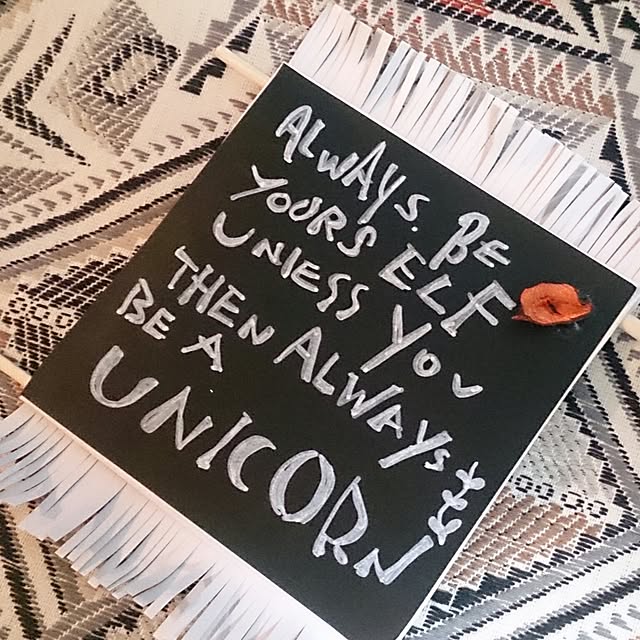 ALWAYS. BE
YOURS ELF
UNlESS YOU
THEN ALWAYS
BE A
UNICORN